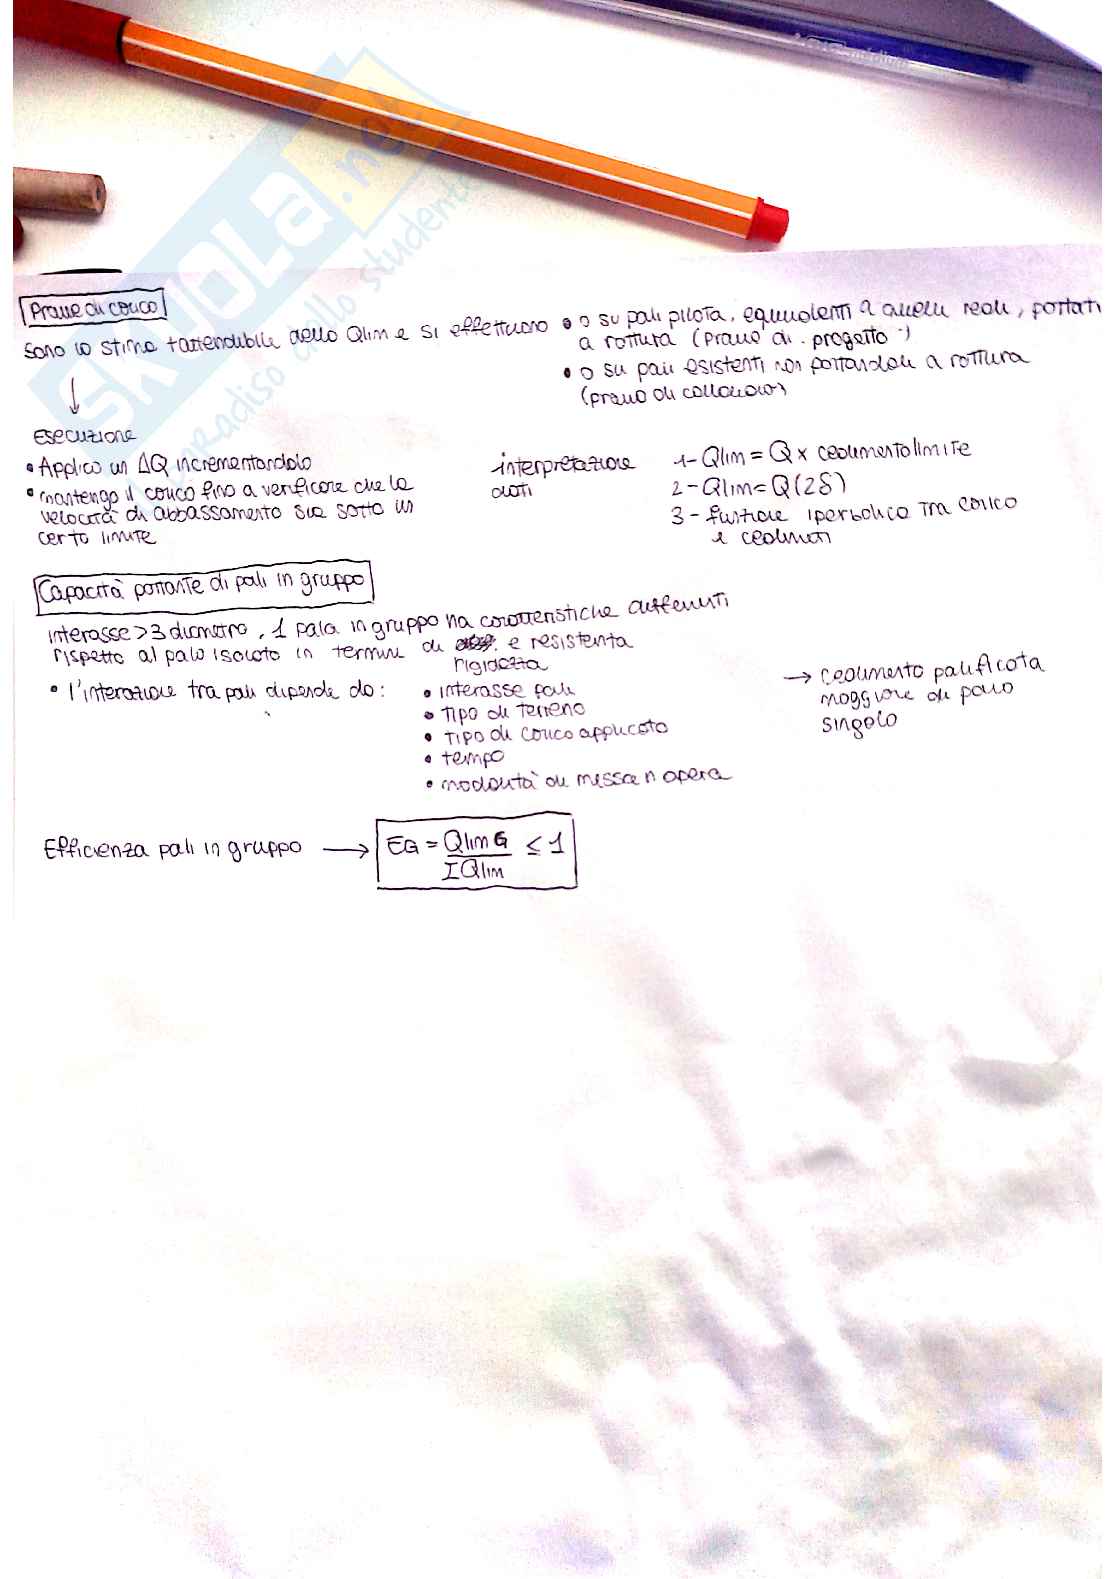 SKUOLA.net
il paradiso dello studente
Prove di carico
sono la stima + attendibile della Qlim e si effettuano
• o su pali pilota, equivalenti a quelli reali, portati
a rottura (prove di progetto)
• o su pali esistenti non portandoli a rottura
(prove di collaudo)
Esecuzione
• Applico un ΔQ incrementandolo
• mantengo il carico fino a verificare che la
velocità di abbassamento sia sotto un
certo limite
interpretazione
dati
1- Qlim = Q x cedimento limite
2- Qlim = Q(2δ)
3- funzione iperbolica tra carico
e cedimenti
Capacità portante di pali in gruppo
interasse > 3 diametro, 1 palo in gruppo ha caratteristiche differenti
rispetto al palo isolato in termini di e resistenza
rigidezza
• l'interazione tra pali dipende da:
• interasse pali
• tipo di terreno
• tipo di carico applicato
• tempo
• modalità di messa n opera
→ cedimento palificata
maggiore di palo
singolo
Efficienza pali in gruppo → EG = QlimG / ΣQlim ≤ 1